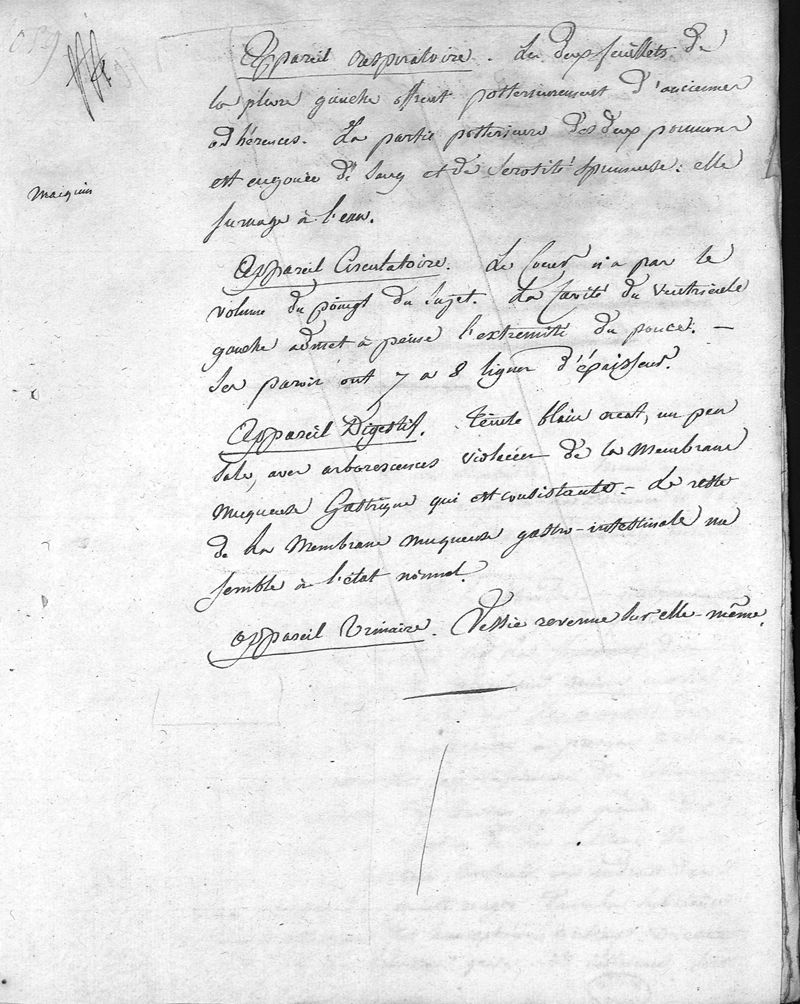 Appareil respiratoire. Les deux feuillets de
la plevre gauche offrent postérieurement d'anciennes
adhérences. La partie postérieure des deux poumons
est engouée de sang et de serosité spumeuse: elle
Maiquin
surnage à l'eau.
Appareil Circulatoire. Le Coeur n'a pas le
volume du poingt du Sujet. La Cavité du Ventricule
gauche admet à peine l'extremité du pouce. —
Ses parois ont 7 a 8 lignes d'épaisseur.
Appareil Digestif. Teinte blanc mat, un peu
Sale, avec arborescences violacées de la Membrane
Muqueuse Gastrique qui est consistante. - Le reste
de La Membrane muqueuse gastro-intestinale me
semble à l'état normal.
Appareil Urinaire. Vessie revenue sur elle-même.